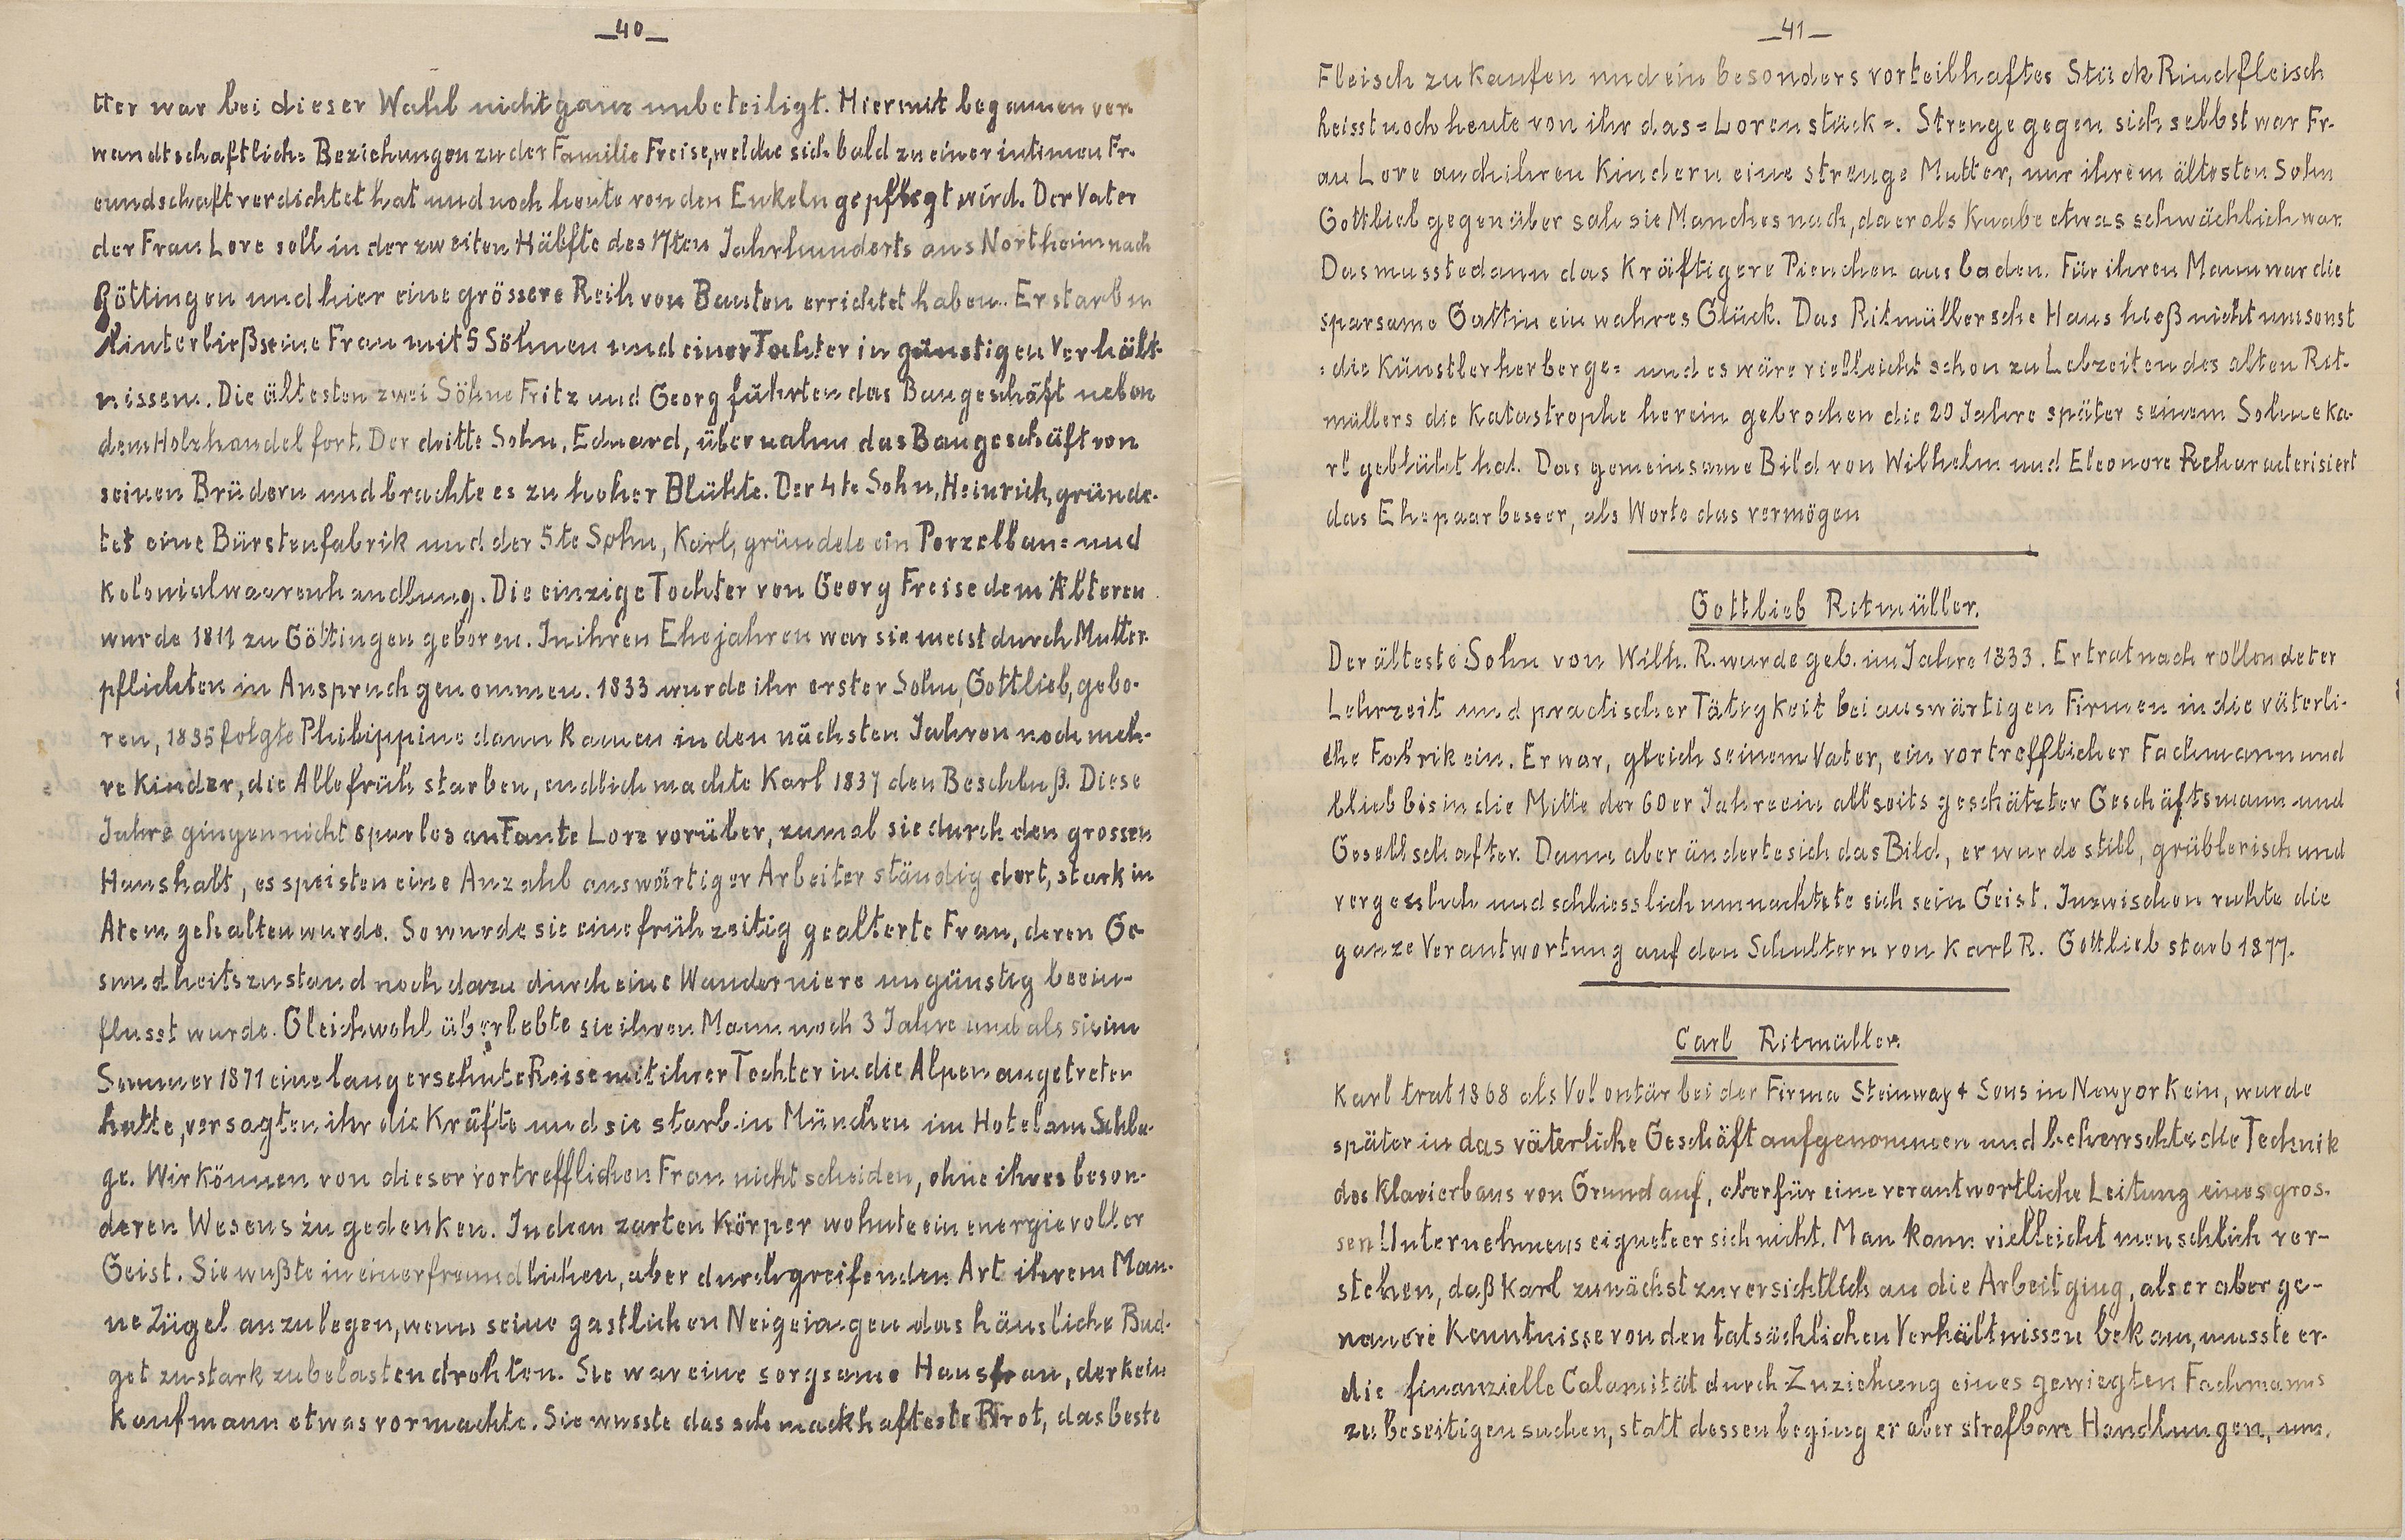 _40_
tter war bei dieser Wahl nicht ganz unbeteiligt. Hiermit begannen ver-
wandtschaftliche Beziehungen zu der Familie Freise, welche sich bald zu einer intimen Fr-
eundschaft verdichtet hat und noch heute von den Enkeln gepflegt wird. Der Vater
der Frau Lore soll in der zweiten Hälfte des 17ten Jahrhunderts aus Northeim nach
Göttingen und hier eine grössere Reih von Bauten errichtet haben. Er starb u
hinterließ seine Frau mit 5 Söhnen und einer Tochter in günstigen Verhält-
nissen. Die ältesten zwei Söhne Fritz und Georg führten das Baugeschäft neben
dem Holzhandel fort. Der dritte Sohn, Eduard, übernahm das Baugeschäft von
seinen Brüdern und brachte es zu hoher Blühte. Der 4te Sohn, Heinrich, gründe-
tet eine Bürstenfabrik und der 5te Sohn, Karl, gründete ein Porzellan= und
Kolonialwaarenhandlung. Die einzige Tochter von Georg Freise dem Älteren
wurde 1811 zu Göttingen geboren. In ihren Ehejahren war sie meist durch Mutter-
pflichten in Anspruch genommen. 1833 wurde ihr erster Sohn, Gottlieb, gebo-
ren, 1835 folgte Philippine dann kamen in den nächsten Jahren noch meh-
re Kinder, die Alle früh starben, endlich machte Karl 1837 den Beschluß. Diese
Jahre gingen nicht spurlos an Tante Lore vorüber, zumal sie durch den grossen
Haushalt, es speisten eine Anzahl auswärtiger Arbeiter ständig dort, stark in
Atem gehalten wurde. So wurde sie eine frühzeitig gealterte Frau, deren Ge-
sundheitszustand noch dazu durch eine Wanderniere ungünstig beein-
flusst wurde. Gleichwohl überlebte sie ihren Mann noch 3 Jahre und als sie im
Sommer 1871 eine lang ersehnte Reise mit ihrer Tochter in die Alpen angetreten
hatte, versagten ihr die Kräfte und sie starb in München im Hotel am Schla-
ge. Wir können von dieser vortrefflichen Frau nicht scheiden, ohne ihres beson-
deren Wesens zu gedenken. In dem zarten Körper wohnte ein energievoller
Geist. Sie wußte in einer freundlichen, aber durchgreifenden Art ihrem Man-
ne Zügel anzulegen, wenn seine gastlichen Neigeiungen das häusliche Bud-
get zu stark zu belasten drohten. Sie war eine sorgsame Hausfrau, der kein
Kaufmann etwas vormachte. Sie wusste das schmackhafteste Brot, das beste
_41_
Fleisch zu kaufen und ein besonders vorteilhaftes Stück Rindfleisch
heisst noch heute von ihr das =Lorenstück=. Strenge gegen sich selbst war Fr-
au Lore auch ihren Kindern eine strenge Mutter, nur ihrem ältesten Sohn
Gottlieb gegenüber sah sie Manches nach, da er als Knabe etwas schwächlich war.
Das musste dann das kräftigere Pienchen ausbaden. Für ihren Mann war die
sparsame Gattin ein wahres Glück. Das Ritmüllersche Haus hieß nicht umsonst
=die Künstlerherberge= und es wäre vielleicht schon zu Lebzeiten des alten Rit-
müllers die Katastrophe herein gebrochen die 20 Jahre später seinem Sohne Ka-
rl geblüht hat. Das gemeinsame Bild von Wilhelm und Eleonore R characterisiert
das Ehepaar besser, als Worte das vermögen
Gottlieb Ritmüller.
Der älteste Sohn von Wilh. R. wurde geb. im Jahre 1833. Er trat nach vollendeter
Lehrzeit und practischer Tätigkeit bei auswärtigen Firmen in die väterli-
che Fabrik ein. Er war, gleich seinem Vater, ein vortrefflicher Fachmann und
blieb bis in die Mitte der 60er Jahre ein allseits geschätzter Geschäftsmann und
Gesellschafter. Dann aber änderte sich das Bild, er wurde still, grüblerisch und
vergesslich und schliesslich umnachtete sich sein Geist. Inzwischen ruhte die
ganze Verantwortung auf den Schultern von Karl R. Gottlieb starb 1877.
Carl Ritmüller.
Karl trat 1868 als Volontär bei der Firma Steinway & Sons in Newyork ein, wurde
später in das väterliche Geschäft aufgenommen und beherrschte die Technik
des Klavierbaus von Grund auf, aber für eine verantwortliche Leitung eines gros-
sen Unternehmens eignete er sich nicht. Man kann vielleicht menschlich ver-
stehen, daß Karl zunächst zuversichtlich an die Arbeit ging, als er aber ge-
nauere Kenntnisse von den tatsächlichen Verhältnissen bekam, musste er
die finanzielle Calamität durch Zuziehung eines gewiegten Fachmanns
zu beseitigen suchen, statt dessen beging er aber strafbare Handlungen, um